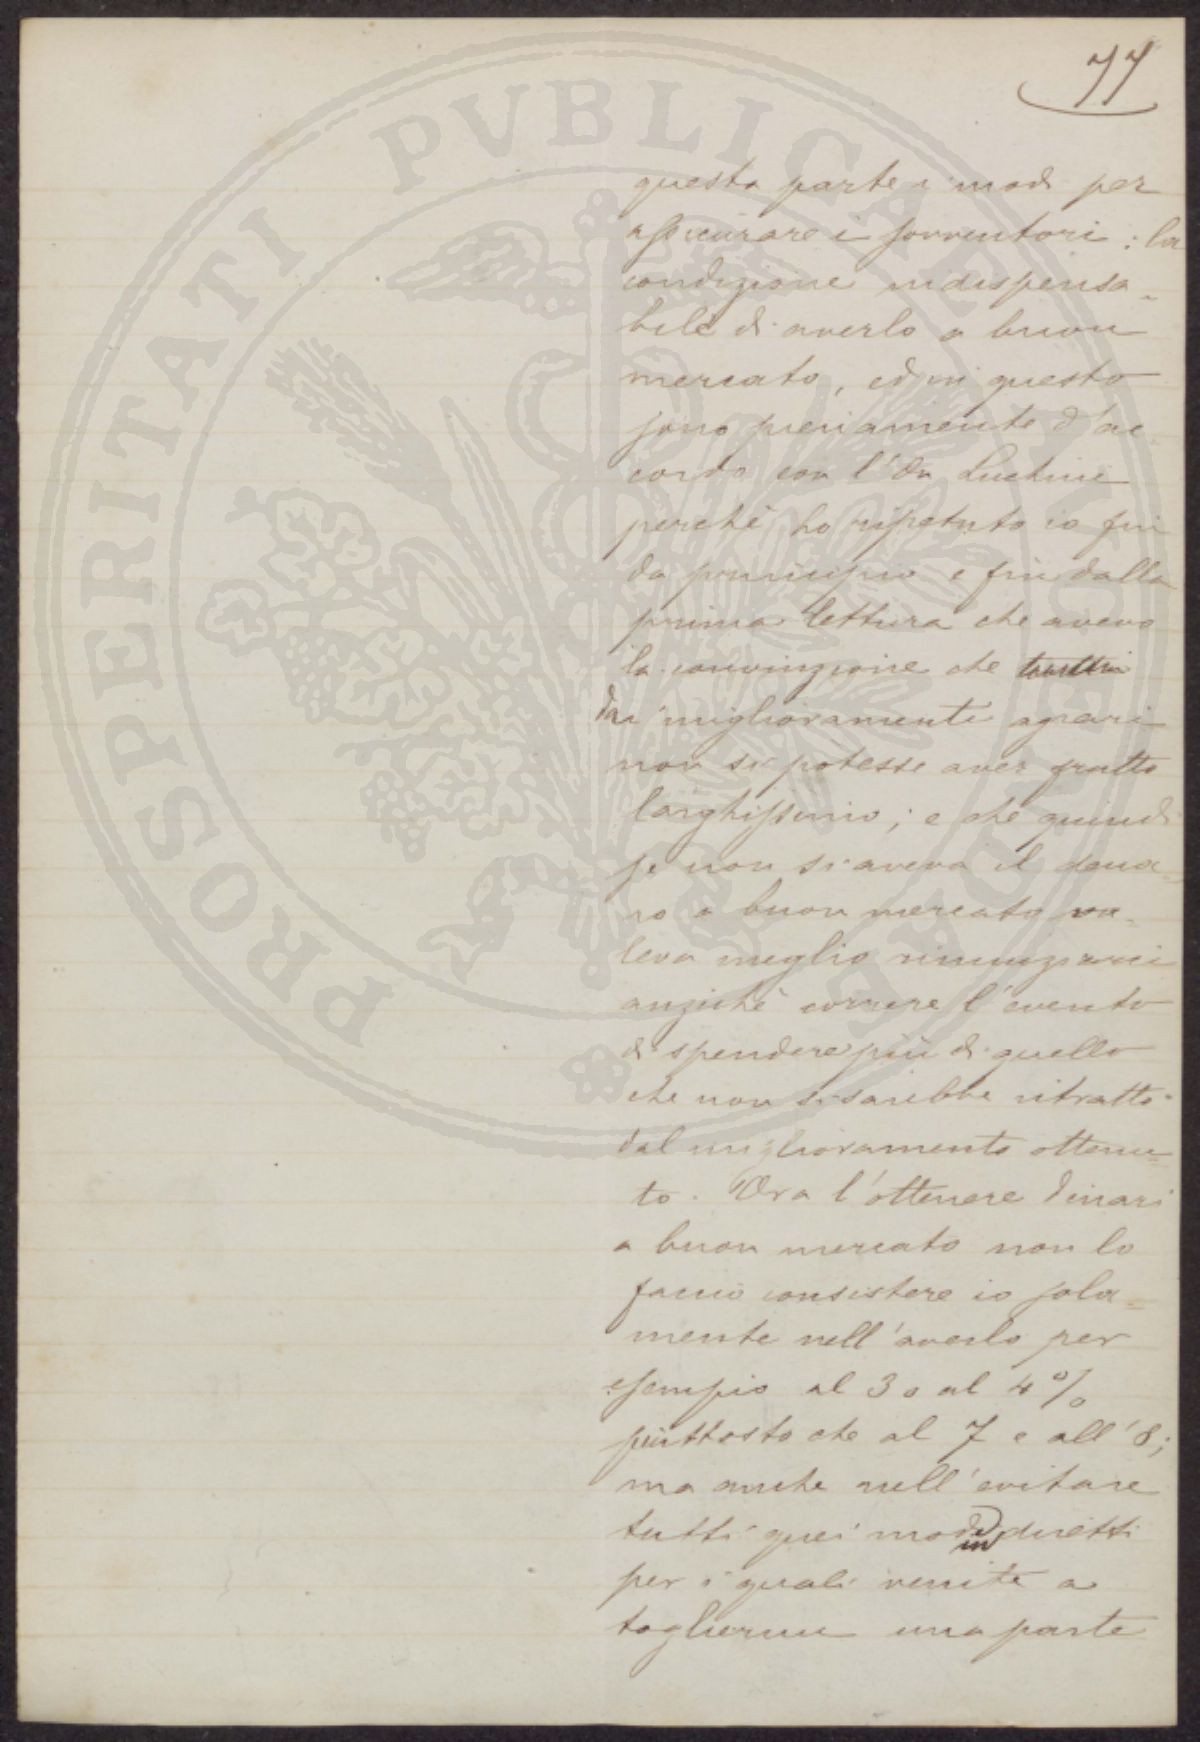 77
questa parte i modi per
assicurare i sovventori: la
condizione indispensa-
bile di averlo a buon
mercato, ed in questo
sono pienamente d'ac-
cordo con l'On Luchini
perchè ho ripetuto io fin
da principio e fin dalla
prima lettura che avevo
la convinzione che
dai miglioramenti agrari
non si potesse aver frutto
larghissimo; e che quindi
se non si aveva il dena-
ro a buon mercato va-
leva meglio rinunziarci
anzichè correre l'evento
di spendere più di quello
che non si sarebbe ritratto
dal miglioramento ottenu-
to. Ora l'ottenere dinari
a buon mercato non lo
faccio consistere io sola-
mente nell'averlo per
esempio al 3 o al 4%
piuttosto che al 7 e all'8;
ma anche nell'evitare
tutti quei modi indiretti
per i quali venite a
togliermi una parte
PROSPERITATI PVBLICAE